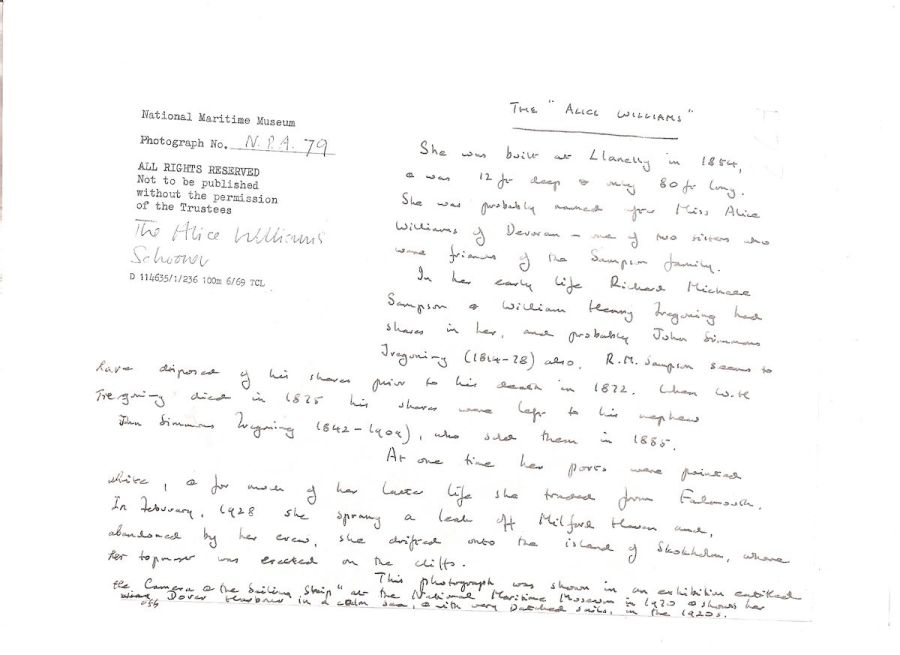 National Maritime Museum
Photograph No. N.P.A. 79
ALL RIGHTS RESERVED
Not to be published
without the permission
of the Trustees
The Alice Williams
Schooner
D 114635/1/236 100m 6/69 TCL
THE "ALICE WILLIAMS"
She was built at Llanelly in 1854,
& was 12 ft deep & only 80 ft long.
She was probably named for Miss Alice
Williams of Devoran - one of two sisters who
were friends of the Sampson family.
In her early life Richard Michael
Sampson & William Henry Tregoning had
shares in her, and probably John Simmons
Tregoning (1814-78) also. R.M. Sampson seems to
have disposed of his shares prior to his death in 1872. When W.H
Tregoning died in 1875 his shares were left to his nephew
John Simmons Tregoning (1842-1904), who sold them in 1885.
At one time her ports were painted
white, & for much of her later life she traded from Falmouth.
In February, 1928 she sprang a leak off Milford Haven and,
abandoned by her crew, she drifted onto the island of Skokholm, where
her topmast was erected on the cliffs.
This photograph was shown in an exhibition entitled
the Camera & the Sailing Ship" at the National Maritime Museum in 1970 & shows her
off Dover Harbour in a calm sea, & with very patched sails, in the 1920s.